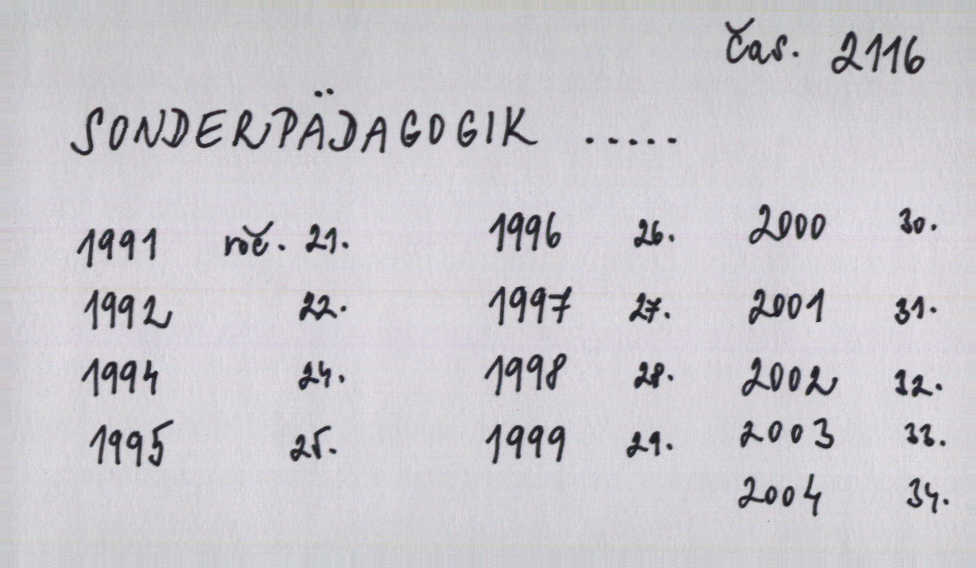 čas. 2116
SONDERPÄDAGOGIK .....
1991 roč. 21. 1996 26. 2000 30.
1992 22. 1997 27. 2001 31.
1994 24. 1998 28. 2002 32.
1995 25. 1999 29. 2003 33.
2004 34.